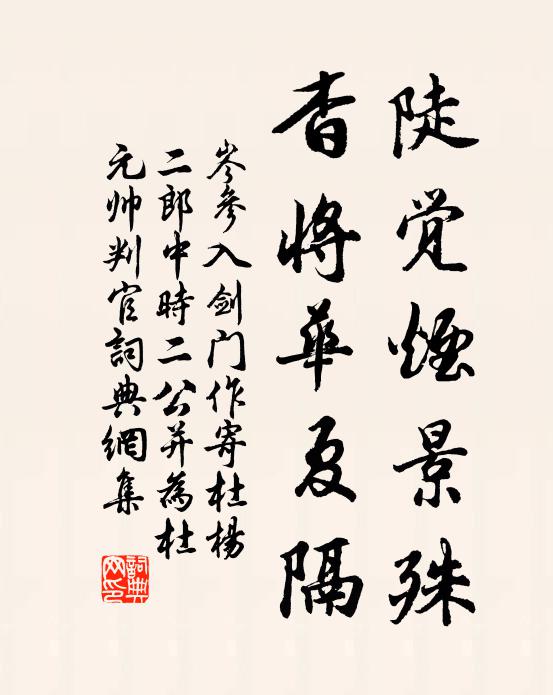 陡觉烟景殊
杳将華夏隔
岑参入剑门作寄杜楊
二郎中時二公并為杜
元帅判官詞典網集
詞典网印